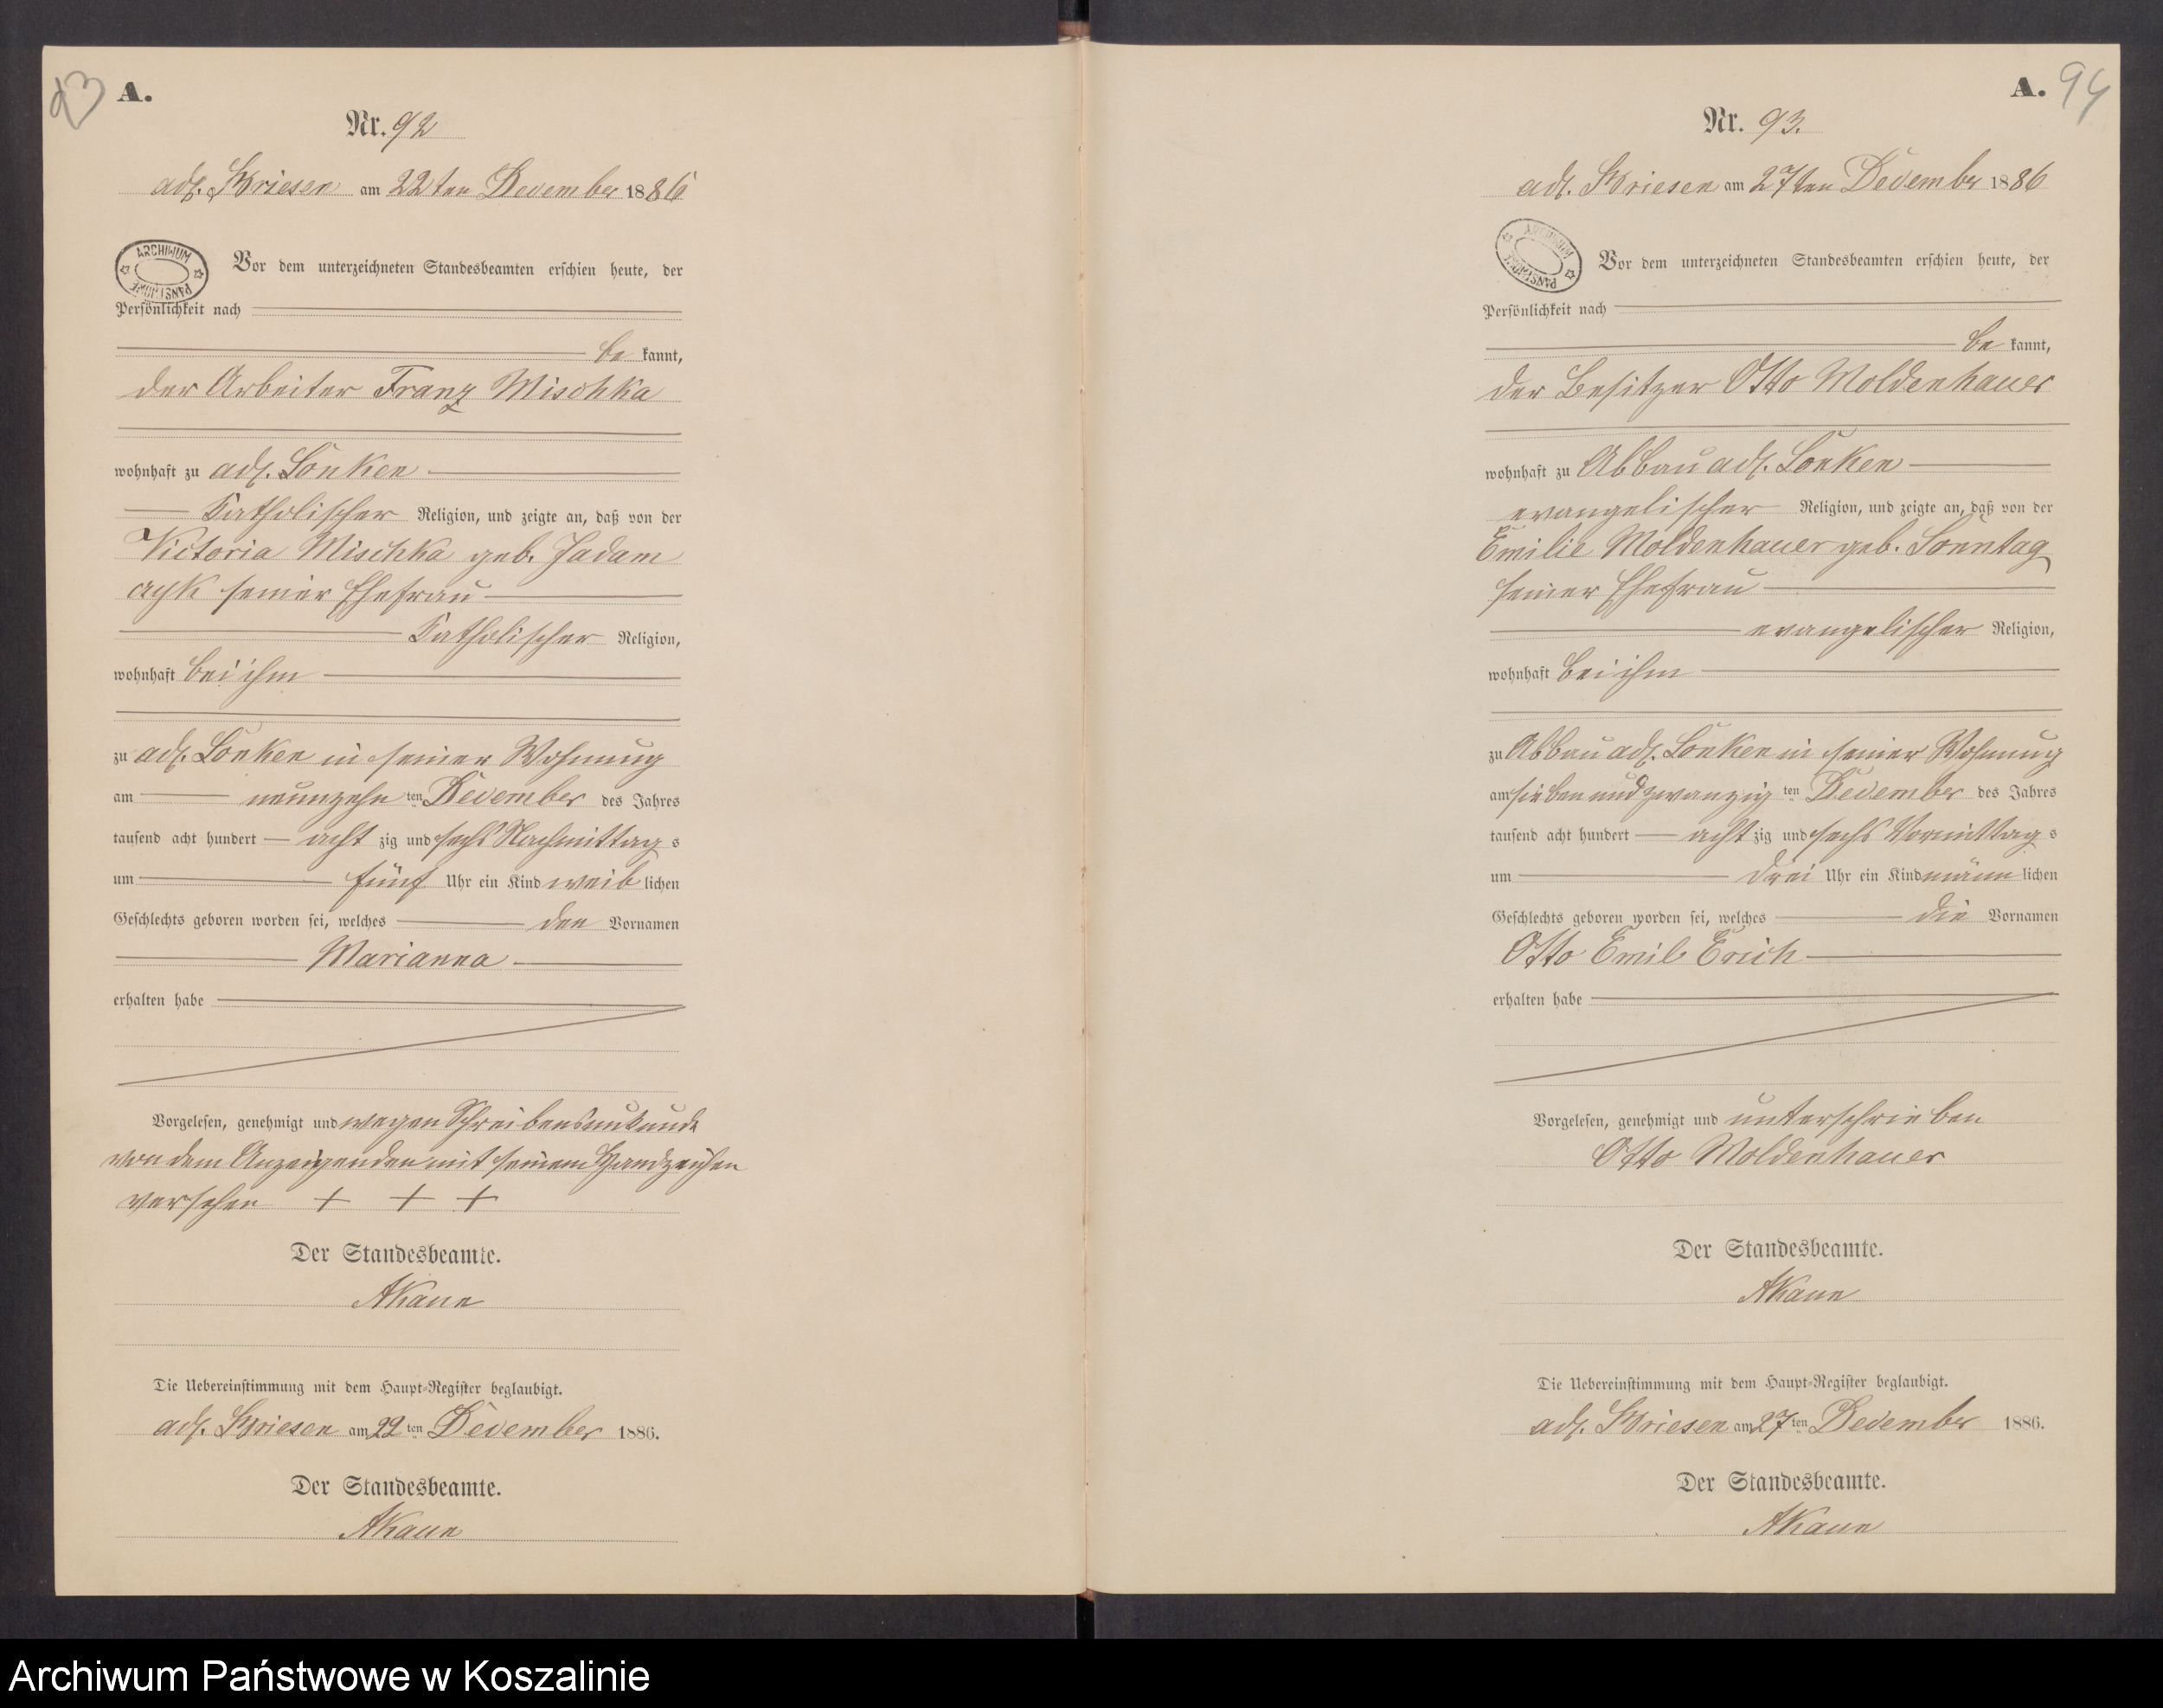 93 A.
Nr. 92
adl. Briesen am 22ten December 1886
ARCHIWUM PAŃSTWOWE
Vor dem unterzeichneten Standesbeamten erschien heute, der
Persönlichkeit nach
be kannt,
der Arbeiter Franz Mischka
wohnhaft zu adl. Lonken
Katholischer Religion, und zeigte an, daß von der
Victoria Mischka geb. Jadam
seiner Ehefrau
Katholischer Religion,
wohnhaft bei ihm
zu adl. Lonken in seiner Wohnung
am neunzehn ten December des Jahres
tausend acht hundert acht zig und sechs Nachmittag s
um fünf Uhr ein Kind weib lichen
Geschlechts geboren worden sei, welches den Vornamen
Marianna
erhalten habe
Vorgelesen, genehmigt und wegen Schreibensunkunde
von dem Anzeigenden mit seinem Handzeichen
versehen + + +
Der Standesbeamte.
AKaun
Die Uebereinstimmung mit dem Haupt-Register beglaubigt.
adl. Briesen am 22 ten December 1886.
Der Standesbeamte.
AKaun
A. 94
Nr. 93.
adl. Briesen am 27ten December 1886
ARCHIWUM PAŃSTWOWE
Vor dem unterzeichneten Standesbeamten erschien heute, der
Persönlichkeit nach
be kannt,
der Besitzer Otto Moldenhauer
wohnhaft zu Abbau adl. Lonken
evangelischer Religion, und zeigte an, daß von der
Emilie Moldenhauer geb. Sonntag
seiner Ehefrau
evangelischer Religion,
wohnhaft bei ihm
zu Abbau adl. Lonken in seiner Wohnung
am sieben und zwanzig ten December des Jahres
tausend acht hundert acht zig und sechs Vormittag s
um drei Uhr ein Kind männ lichen
Geschlechts geboren worden sei, welches die Vornamen
Otto Emil Erich
erhalten habe
Vorgelesen, genehmigt und unterschrieben
Otto Moldenhauer
Der Standesbeamte.
AKaun
Die Uebereinstimmung mit dem Haupt-Register beglaubigt.
adl. Briesen am 27 ten December 1886.
Der Standesbeamte.
AKaun
Archiwum Państwowe w Koszalinie